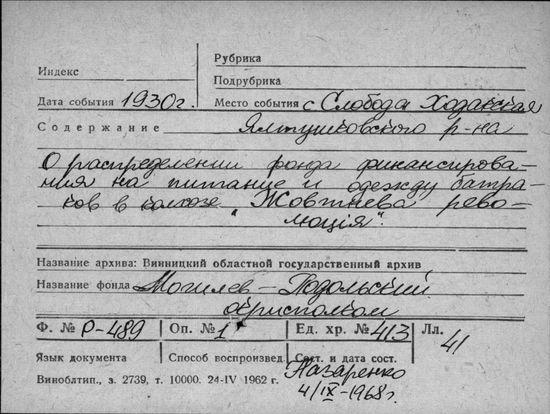 Индекс
Рубрика
Подрубрика
Дата события 1930 г. Место события с. Слобода Ходакская
Содержание Ялтушковского р-на
О распределении фонда финансирова-
ния на питание и одежду батра-
ков в колхозе "Жовтнева рево-
люція".
Название архива: Винницкий областной государственный архив
Название фонда Могилев-Подольский
окрисполком
Ф. № Р-489 Оп. № 1 Ед. хр. № 413 Лл. 41
Язык документа Способ воспроизвед. Сост. и дата сост.
Назаренко
Виноблтип., з. 2739, т. 10000. 24-IV 1962 г. 4/IX-1968 г.